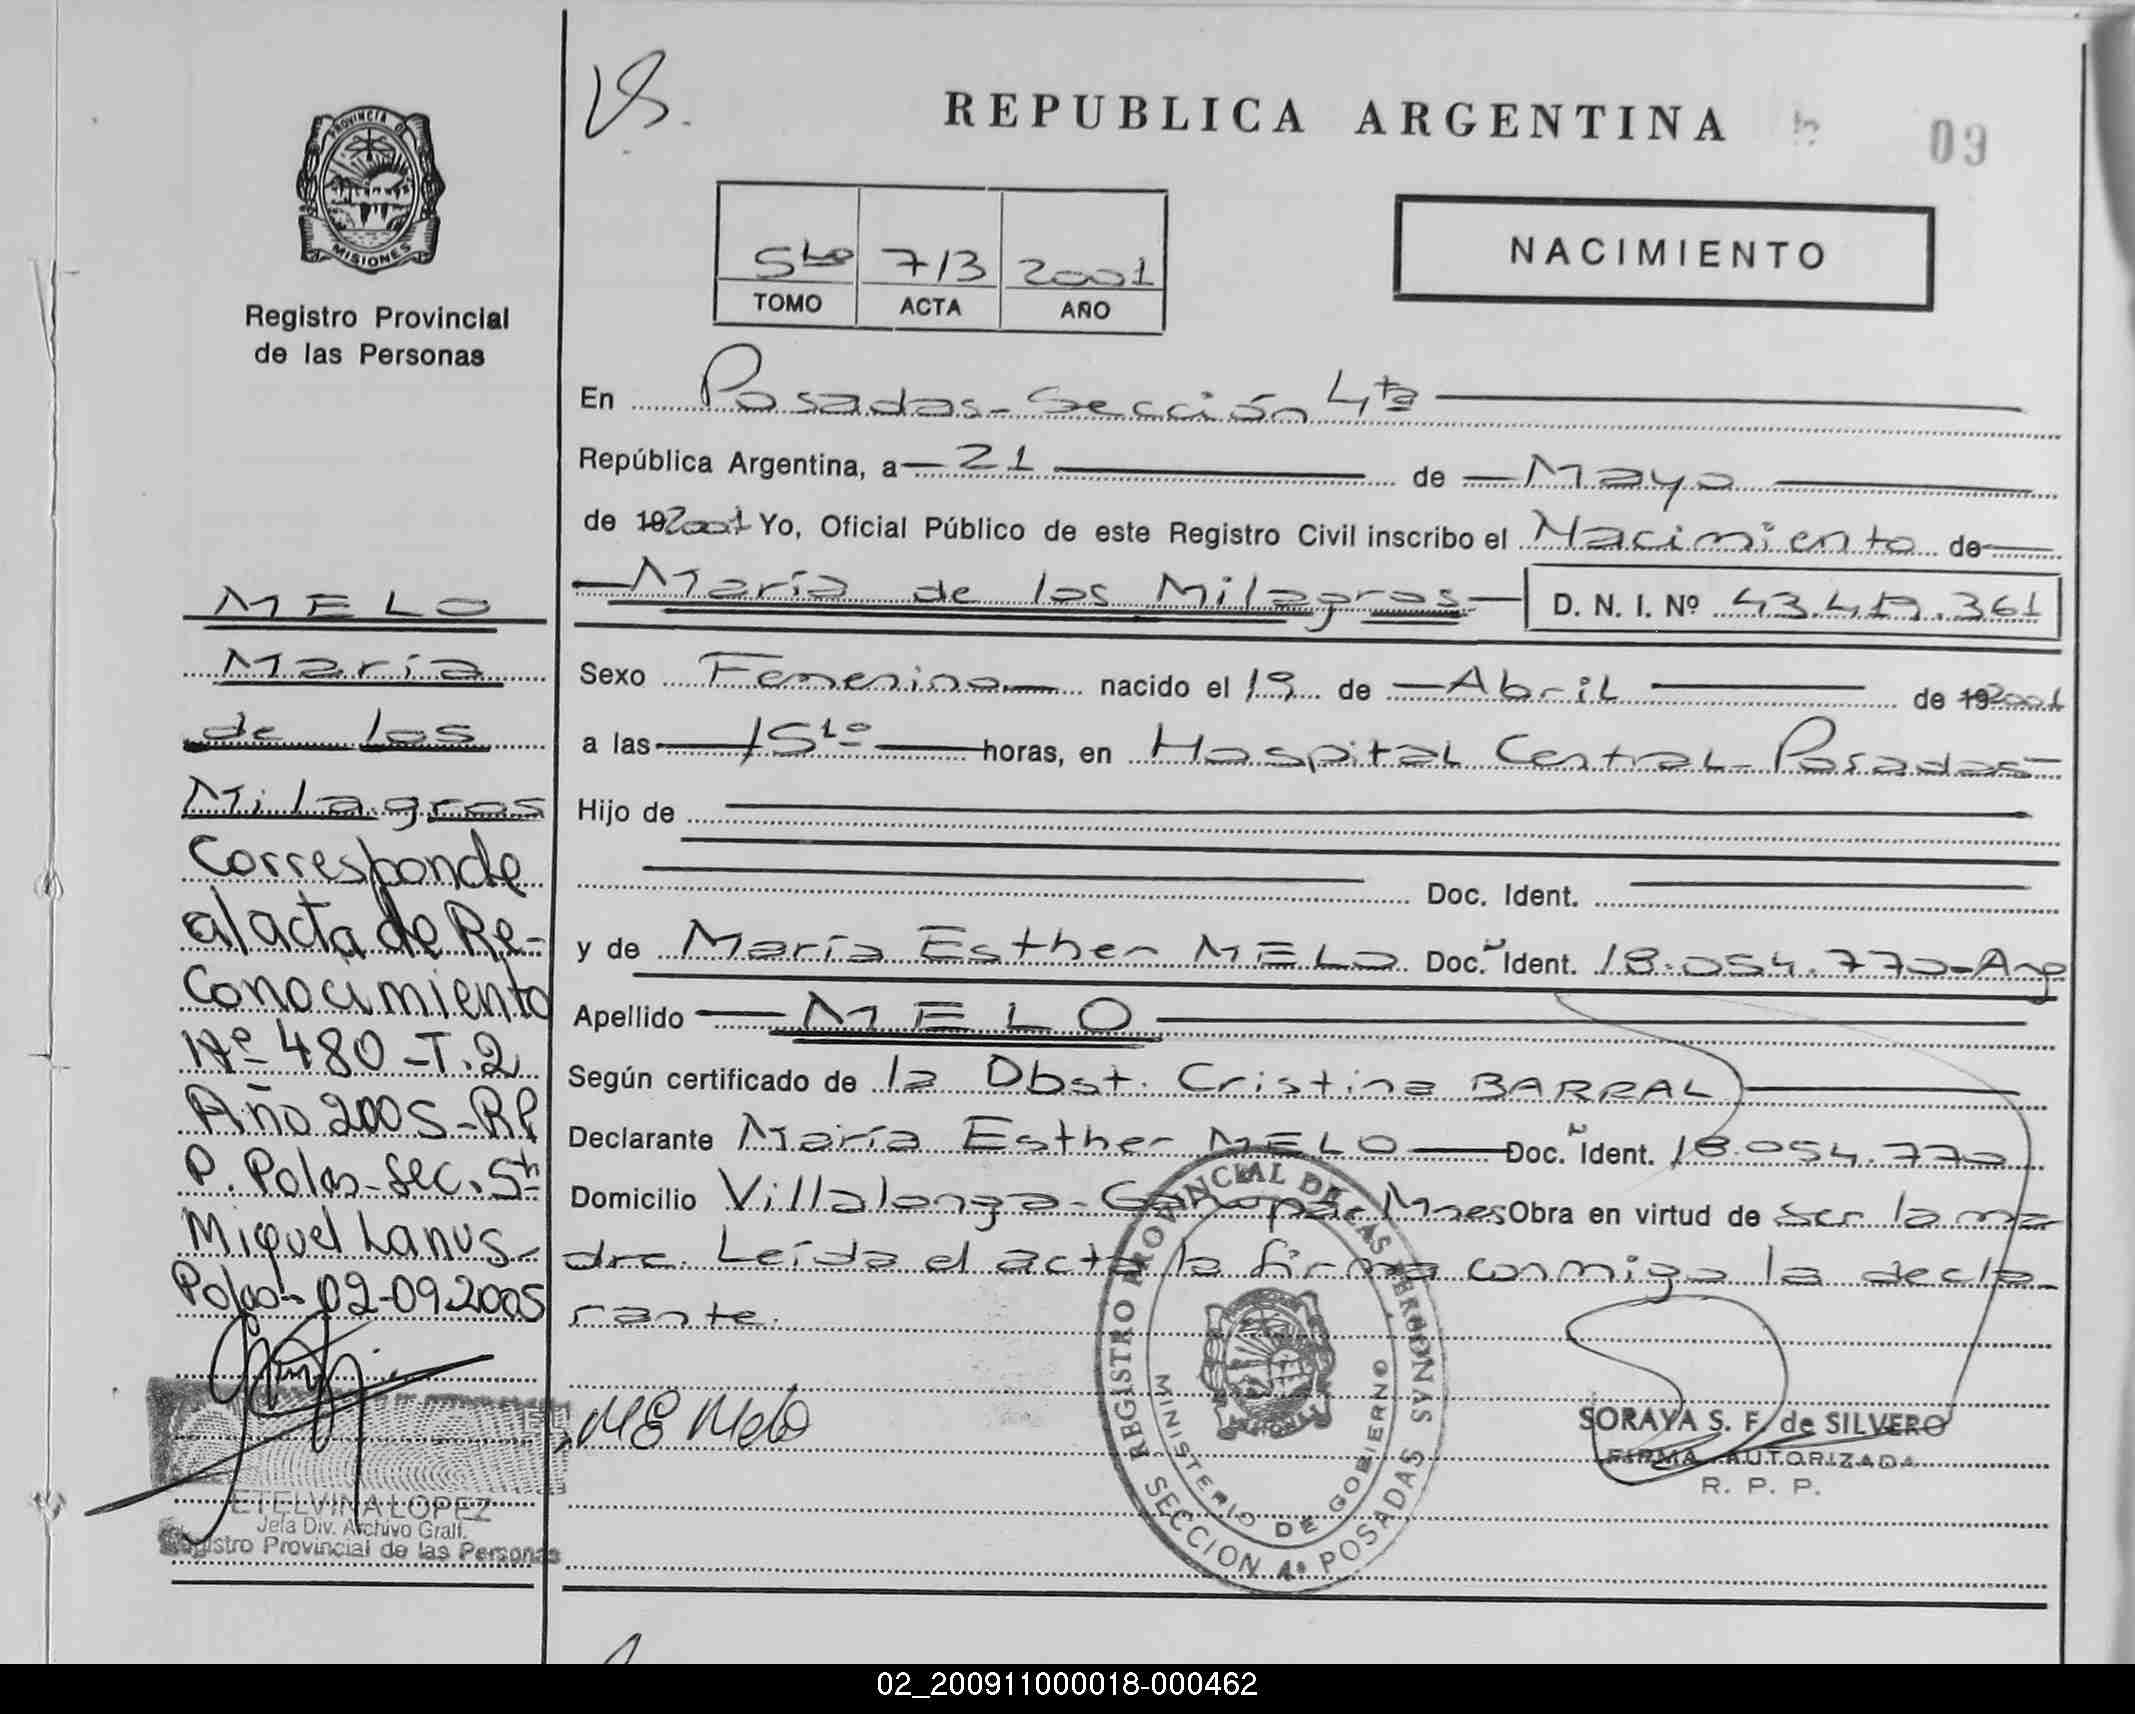 REPUBLICA ARGENTINA
09
PROVINCIA DE
MISIONES
Registro Provincial
de las Personas
5to 713 2001
TOMO ACTA AÑO
NACIMIENTO
En Posadas - Sección 4ta
República Argentina, a 21 de Mayo
de 19 2001 Yo, Oficial Público de este Registro Civil inscribo el Nacimiento de
María de los Milagros D. N. I. Nº 43.419.361
Sexo Femenino nacido el 19 de Abril de 19 2001
a las 15 10 horas, en Hospital Central - Posadas -
Hijo de
Doc. Ident.
y de María Esther MELO Doc. Ident. 18.054.770 - Arg
Apellido MELO
Según certificado de la Obst. Cristina BARRAL
Declarante María Esther MELO Doc. Ident. 18.054.770
Domicilio Villalonga - Garupá - Mnes Obra en virtud de ser la ma-
dre. Leída el acta la firma conmigo la decla-
rante.
MELO
María
de los
Milagros
Corresponde
al acta de Re-
conocimiento
Nº 480 - T. 2
Año 2005 - RP
P. Pdas - Sec. 5ta
Miguel Lanus -
Pdas - 02-09-2005
ETELVINA LOPEZ
Jefa Div. Archivo Gral.
Registro Provincial de las Personas
ME Melo
REGISTRO PROVINCIAL DE LAS PERSONAS
MINISTERIO DE GOBIERNO
SECCION 4ª POSADAS
SORAYA S. F. de SILVERO
FIRMA AUTORIZADA
R. P. P.
02_200911000018-000462